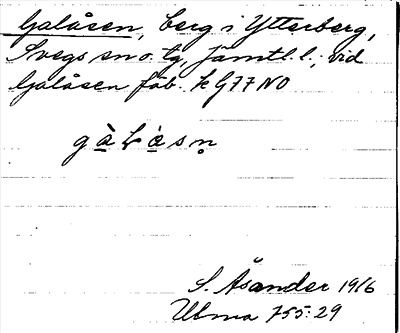 Galåsen, berg i Ytterberg,
Svegs sn o. tg, Jämtl. l.; vid
Galåsen fäb. k G77NO
gàḷå̀sn̥
S. Åsander 1916
Ulma 755:29